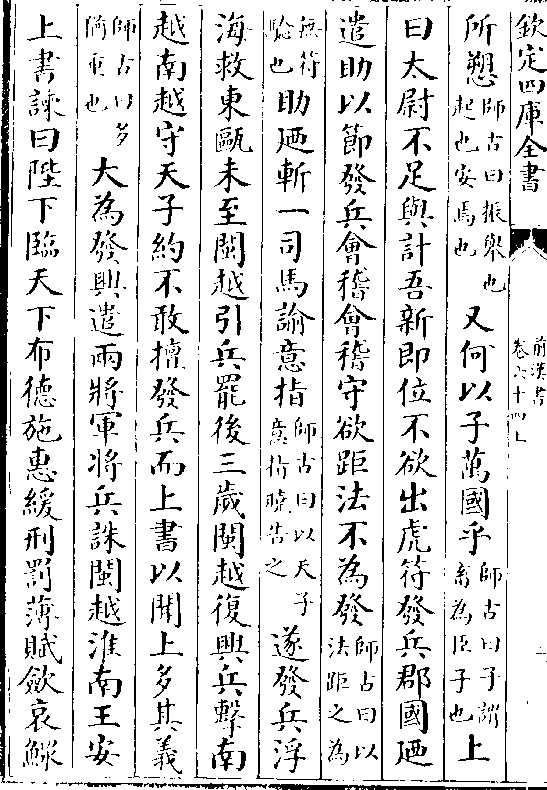 欽定四庫全書
前漢書
卷六十四上
所愬師古曰振舉也起也安焉也又何以子萬國乎師古曰子謂畜為臣子也上
曰太尉不足與計吾新即位不欲出虎符發兵郡國廼
遣助以節發兵會稽會稽守欲距法不為發師古曰以法距之為
無符驗也助廼斬一司馬諭意指師古曰以天子意指曉告之遂發兵浮
海救東甌未至閩越引兵罷後三歲閩越復興兵擊南
越南越守天子約不敢擅發兵而上書以聞上多其義
師古曰多猶重也大為發興遣兩將軍將兵誅閩越淮南王安
上書諫曰陛下臨天下布德施惠緩刑罰薄賦歛哀鰥